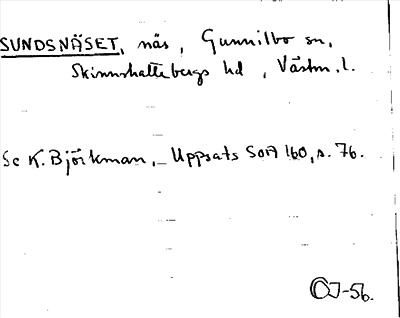 SUNDSNÄSET, näs, Gunnilbo sn,
Skinnskattebergs hd, Västm. l.
Se K. Björkman, Uppsats SOA 160, s. 76.
OJ-56.